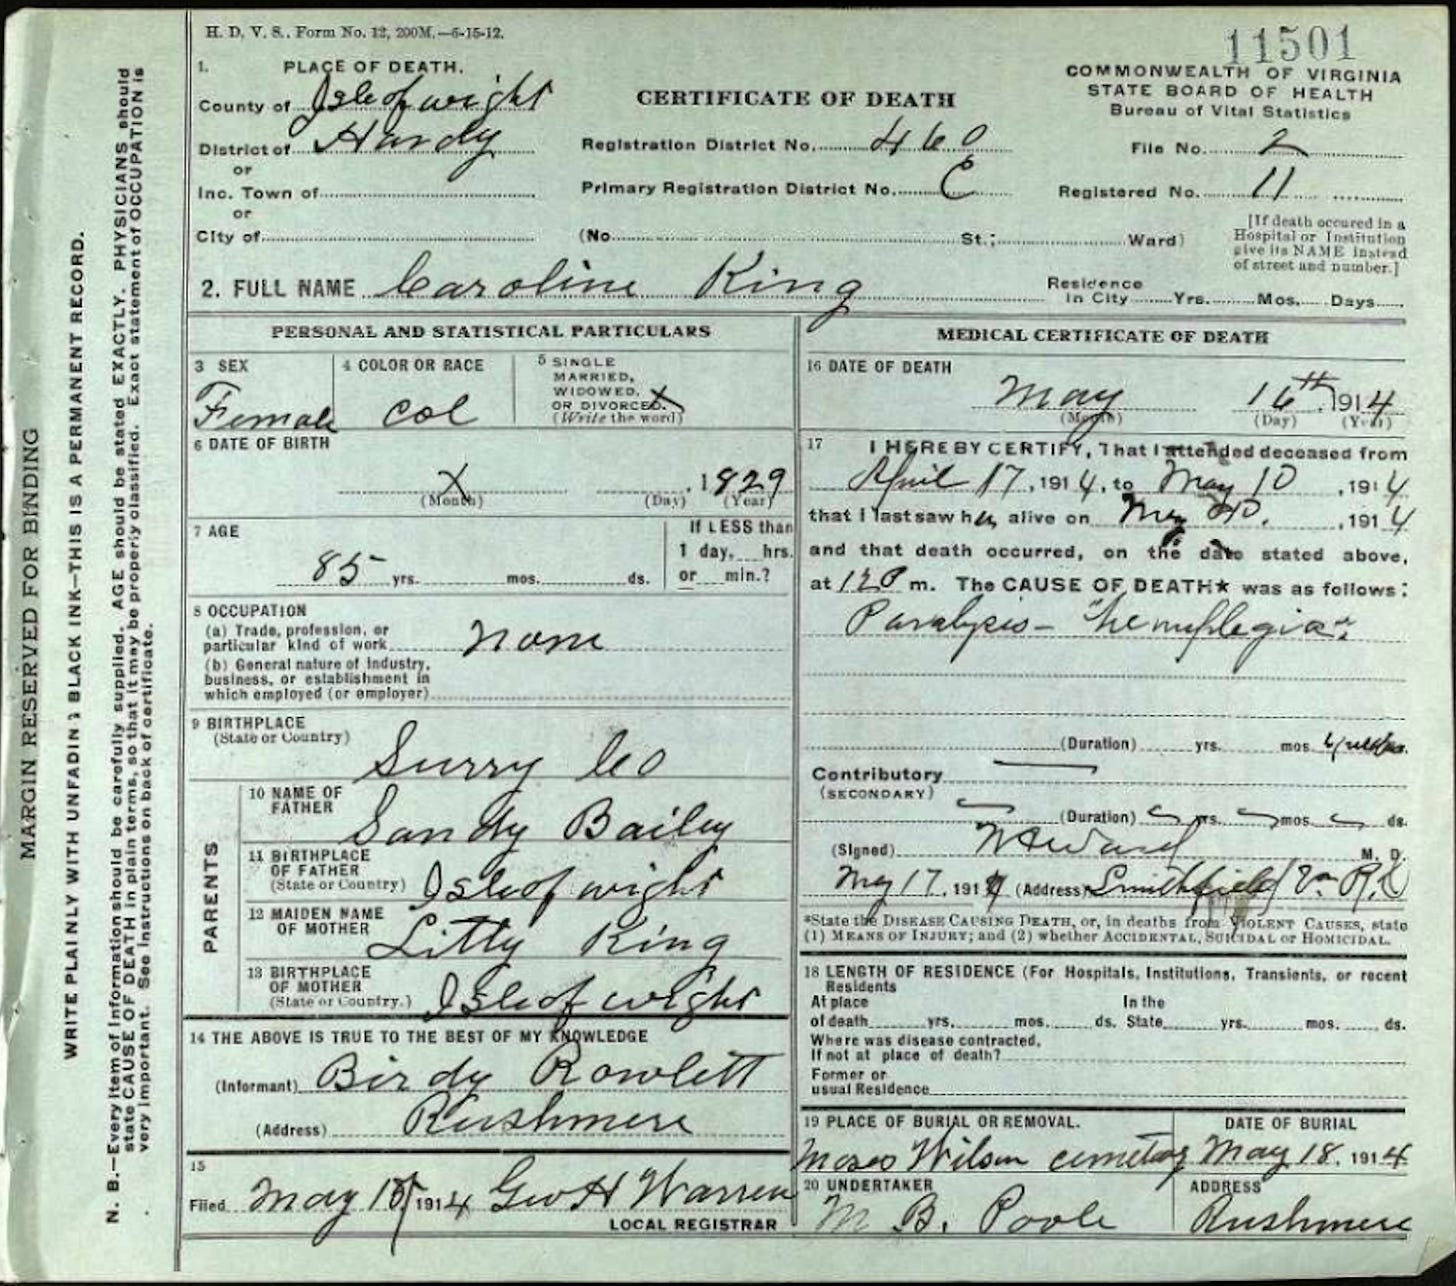 H. D. V. S., Form No. 12, 200M.—6-15-12.
11501
COMMONWEALTH OF VIRGINIA
STATE BOARD OF HEALTH
Bureau of Vital Statistics
CERTIFICATE OF DEATH
1. PLACE OF DEATH.
County of Isle of wight
District of Hardy
or
Inc. Town of
or
City of
Registration District No. 460
Primary Registration District No. C
(No. St.; Ward)
File No. 2
Registered No. 11
[If death occured in a
Hospital or Institution
give its NAME instead
of street and number.]
2. FULL NAME Caroline King
Residence
In City Yrs. Mos. Days
PERSONAL AND STATISTICAL PARTICULARS
3 SEX
Female
4 COLOR OR RACE
col
5 SINGLE
MARRIED,
WIDOWED,
OR DIVORCED. X
(Write the word)
6 DATE OF BIRTH
X , 1829
(Month) (Day) (Year)
7 AGE
85 yrs. mos. ds.
If LESS than
1 day, hrs.
or min.?
8 OCCUPATION
(a) Trade, profession, or
particular kind of work none
(b) General nature of industry,
business, or establishment in
which employed (or employer)
9 BIRTHPLACE
(State or Country)
Surry Co
PARENTS
10 NAME OF
FATHER
Sandy Bailey
11 BIRTHPLACE
OF FATHER
(State or Country) Isle of wight
12 MAIDEN NAME
OF MOTHER
Litty King
13 BIRTHPLACE
OF MOTHER
(State or Country.) Isle of wight
14 THE ABOVE IS TRUE TO THE BEST OF MY KNOWLEDGE
(Informant) Birdy Rowlett
(Address) Rushmere
15
Filed May 18, 1914 Geo H Warren
LOCAL REGISTRAR
MEDICAL CERTIFICATE OF DEATH
16 DATE OF DEATH
May 16th, 1914
(Month) (Day) (Year)
17 I HEREBY CERTIFY, That I attended deceased from
April 17, 1914, to May 10, 1914
that I last saw her alive on May 10, 1914
and that death occurred, on the date stated above,
at 12 P m. The CAUSE OF DEATH★ was as follows:
Paralysis — "hemiplegia"
(Duration) yrs. mos.
Contributory
(SECONDARY)
(Duration) yrs. mos. ds.
(Signed) M. D.
May 17, 1914 (Address) Smithfield Va R.D
*State the DISEASE CAUSING DEATH, or, in deaths from VIOLENT CAUSES, state
(1) MEANS OF INJURY; and (2) whether ACCIDENTAL, SUICIDAL or HOMICIDAL.
18 LENGTH OF RESIDENCE (For Hospitals, Institutions, Transients, or recent
Residents
At place In the
of death yrs. mos. ds. State yrs. mos. ds.
Where was disease contracted,
If not at place of death?
Former or
usual Residence
19 PLACE OF BURIAL OR REMOVAL.
Moses Wilson cemetary
DATE OF BURIAL
May 18. 1914
20 UNDERTAKER
M B. Poole
ADDRESS
Rushmere
MARGIN RESERVED FOR BINDING
WRITE PLAINLY WITH UNFADING BLACK INK—THIS IS A PERMANENT RECORD.
N. B.—Every item of information should be carefully supplied. AGE should be stated EXACTLY. PHYSICIANS should
state CAUSE OF DEATH in plain terms, so that it may be properly classified. Exact statement of OCCUPATION is
very important. See instructions on back of certificate.